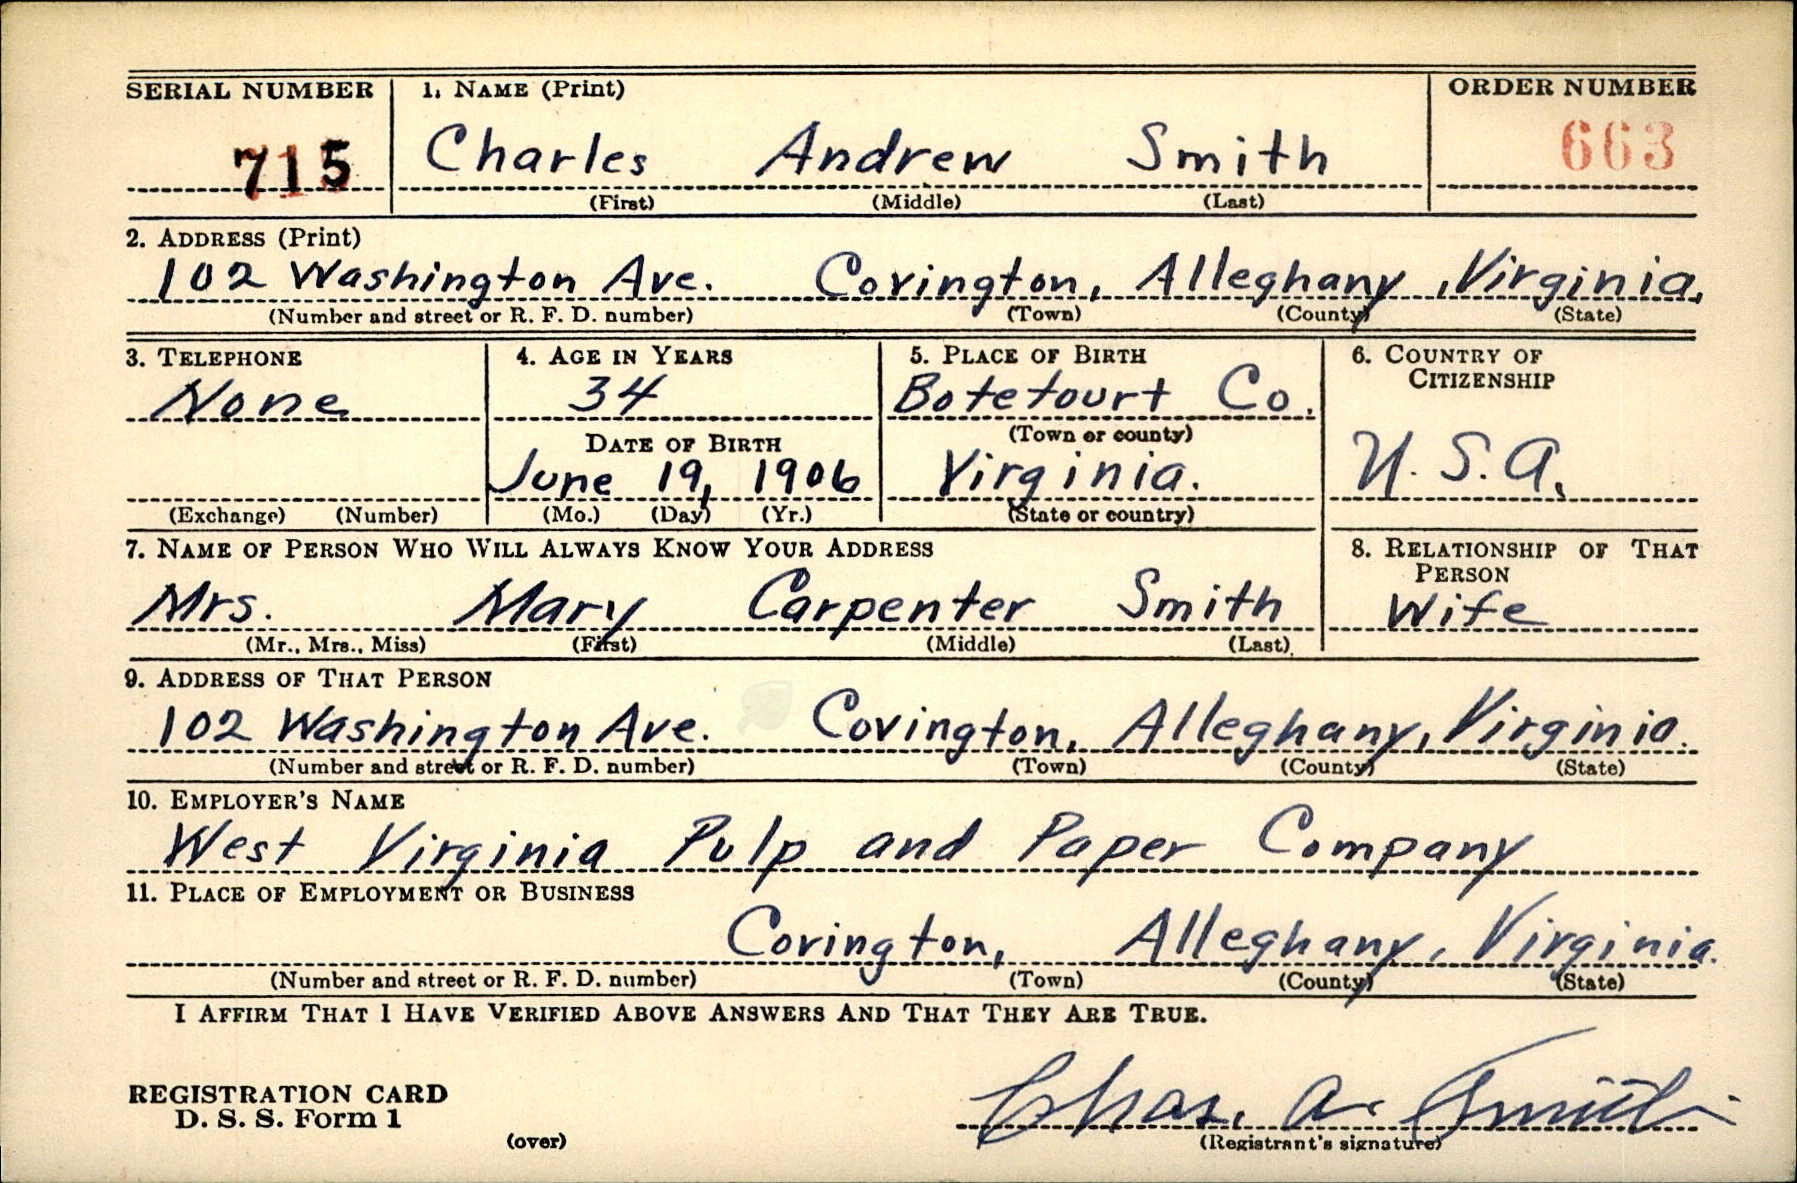 SERIAL NUMBER 1. NAME (Print) ORDER NUMBER
715 Charles Andrew Smith 663
(First) (Middle) (Last)
2. ADDRESS (Print)
102 Washington Ave. Covington, Alleghany, Virginia.
(Number and street or R. F. D. number) (Town) (County) (State)
3. TELEPHONE 4. AGE IN YEARS 5. PLACE OF BIRTH 6. COUNTRY OF
CITIZENSHIP
None 34 Botetourt Co.
DATE OF BIRTH (Town or county)
June 19, 1906 Virginia. U.S.A.
(Exchange) (Number) (Mo.) (Day) (Yr.) (State or country)
7. NAME OF PERSON WHO WILL ALWAYS KNOW YOUR ADDRESS 8. RELATIONSHIP OF THAT
PERSON
Mrs. Mary Carpenter Smith Wife
(Mr., Mrs., Miss) (First) (Middle) (Last)
9. ADDRESS OF THAT PERSON
102 Washington Ave. Covington, Alleghany, Virginia.
(Number and street or R. F. D. number) (Town) (County) (State)
10. EMPLOYER'S NAME
West Virginia Pulp and Paper Company
11. PLACE OF EMPLOYMENT OR BUSINESS
Covington, Alleghany, Virginia.
(Number and street or R. F. D. number) (Town) (County) (State)
I AFFIRM THAT I HAVE VERIFIED ABOVE ANSWERS AND THAT THEY ARE TRUE.
REGISTRATION CARD
D. S. S. Form 1 Chas. A. Smith
(over) (Registrant's signature)